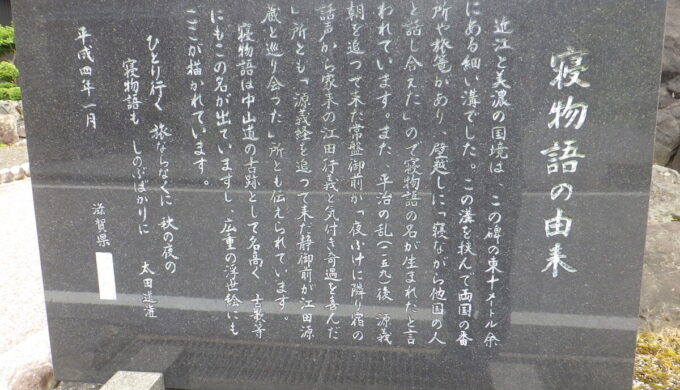 寝物語の由来
近江と美濃の国境は、この碑の東十メートル余
にある細い溝でした。この溝を挟んで両国の番
所や旅篭があり、壁越しに「寝ながら他国の人
と話し合えた」ので寝物語の名が生まれたと言
われています。また、平治の乱(一一五九)後、源義
朝を追って来た常盤御前が「夜ふけに隣り宿の
話声から家来の江田行義と気付き奇遇を喜んだ
」所とも「源義経を追って来た静御前が江田源
蔵と巡り会った」所とも伝えられています。
寝物語は中山道の古跡として名高く、古歌等
にもこの名が出ていますし、広重の浮世絵にも
ここが描かれています。
ひとり行く 旅ならなくに 秋の夜の
寝物語も しのぶばかりに
太田道灌
平成四年一月
滋賀県